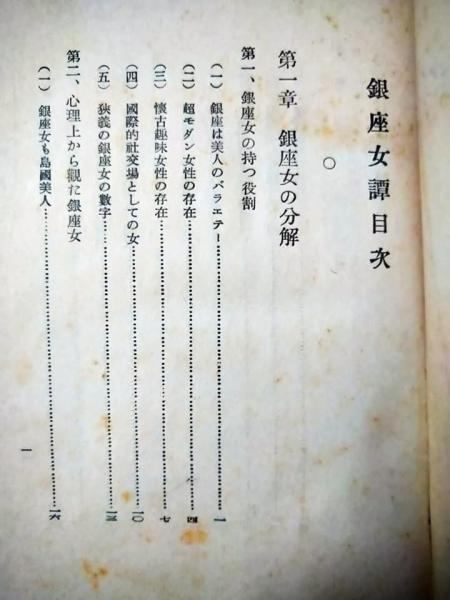 銀座女譚目次
○
第一章 銀座女の分解
第一、銀座女の持つ役割
(一) 銀座は美人のバラエテー……一
(二) 超モダン女性の存在……四
(三) 懷古趣味女性の存在……七
(四) 國際的社交場としての女……一〇
(五) 狹義の銀座女の數字……一三
第二、心理上から觀た銀座女
(一) 銀座女も島國美人……一六
一